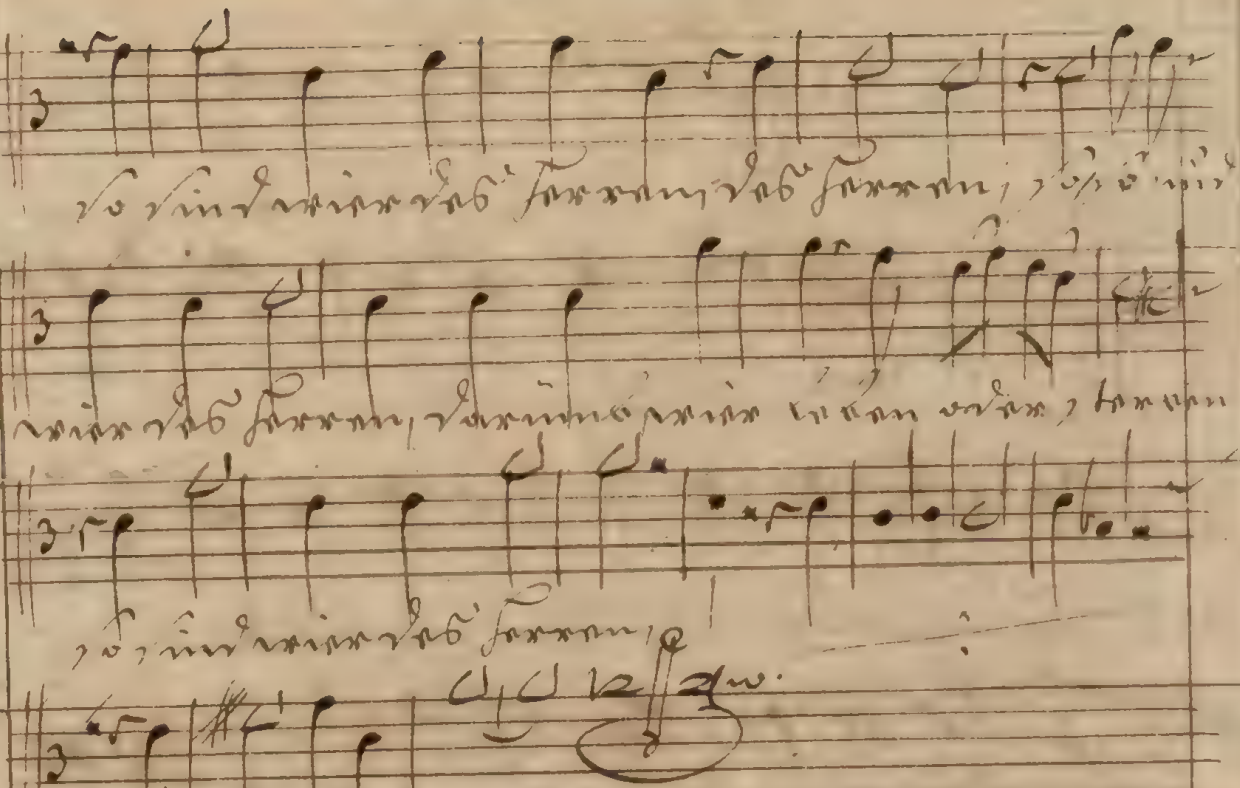 so sind wier des herren, des herren, so, so sind
wier des herren, darumb wier leben oder, sterben
so, sind wier des herren,